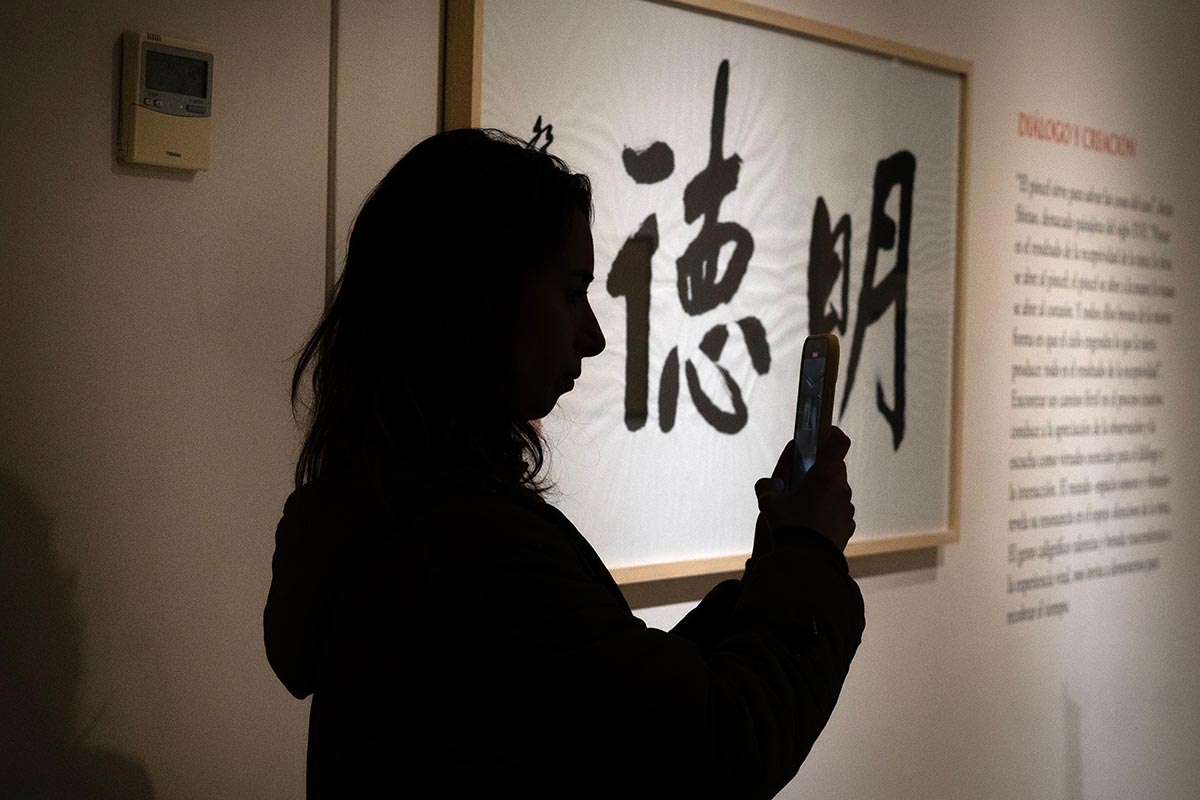 TOSHIBA
明德
DIÁLOGO Y CREACIÓN
"El pincel sirve para salvar las cosas del caos", decía
Shitao, destacado paisajista del siglo XVII. "Pintar
es el resultado de la receptividad de la tinta: la tinta
se abre al pincel; el pincel se abre a la mano; la mano
se abre al corazón. Y todos ellos brotan de la misma
forma en que el cielo engendra lo que la tierra
produce: todo es el resultado de la receptividad".
Encontrar un camino fértil en el proceso creativo
conduce a la apreciación de la observación y la
escucha como virtudes esenciales para el diálogo y
la interacción. El mundo -espacio
revela su resonancia en el espejo silencioso de la tinta.
El gesto caligráfico ralentiza y
la experiencia vital, nos invita a detenernos para
recobrar el tiempo.